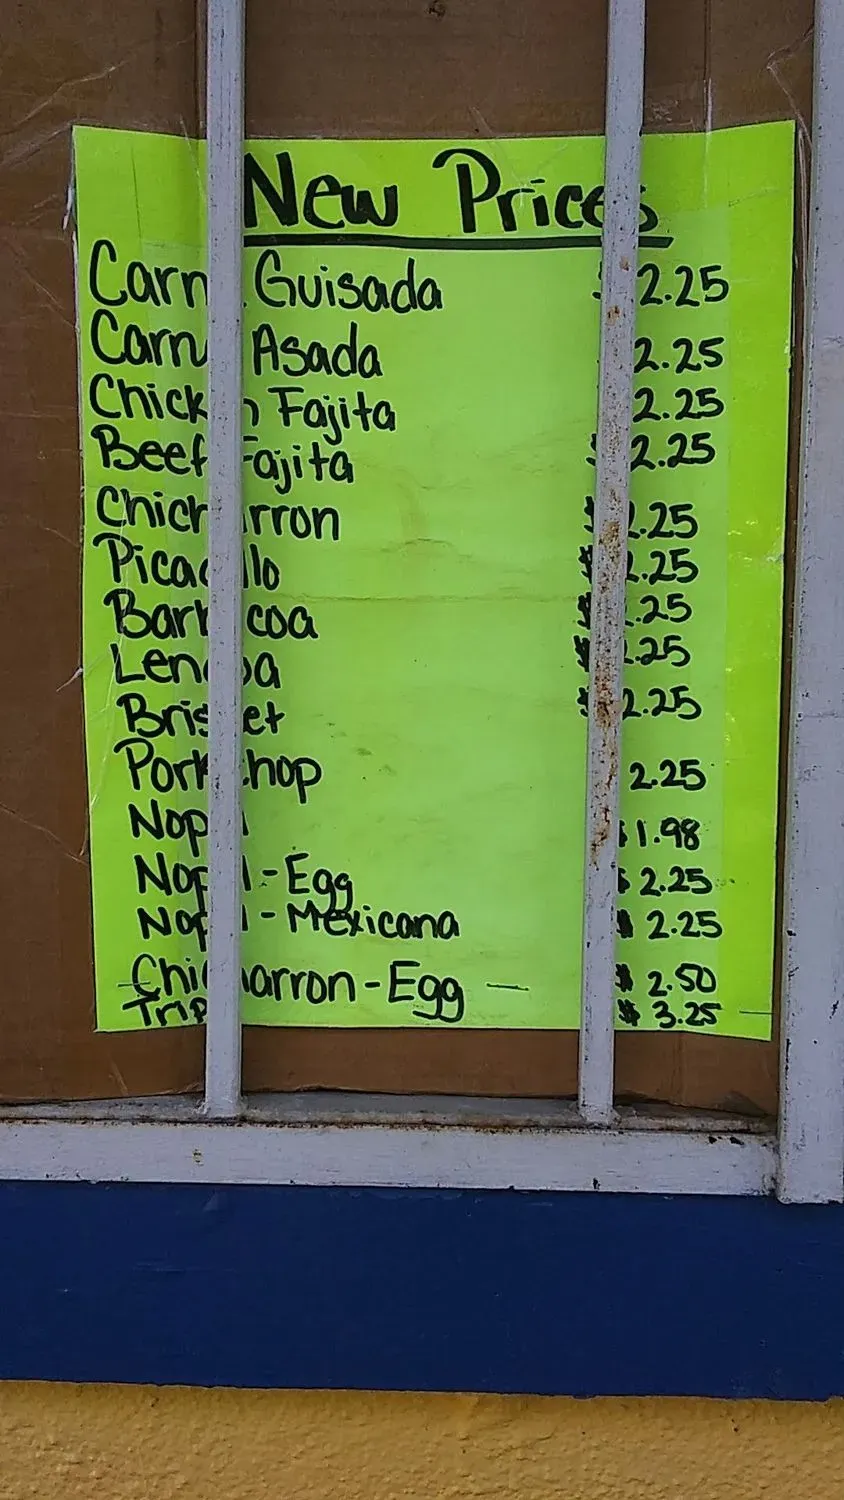 New Prices
Carne Guisada $2.25
Carne Asada 2.25
Chicken Fajita 2.25
Beef Fajita $2.25
Chicharron $2.25
Picadillo $2.25
Barbacoa $2.25
Lengua $2.25
Brisket $2.25
Porkchop 2.25
Nopal $1.98
Nopal-Egg $2.25
Nopal-Mexicana $2.25
Chicharron-Egg — $2.50
$3.25